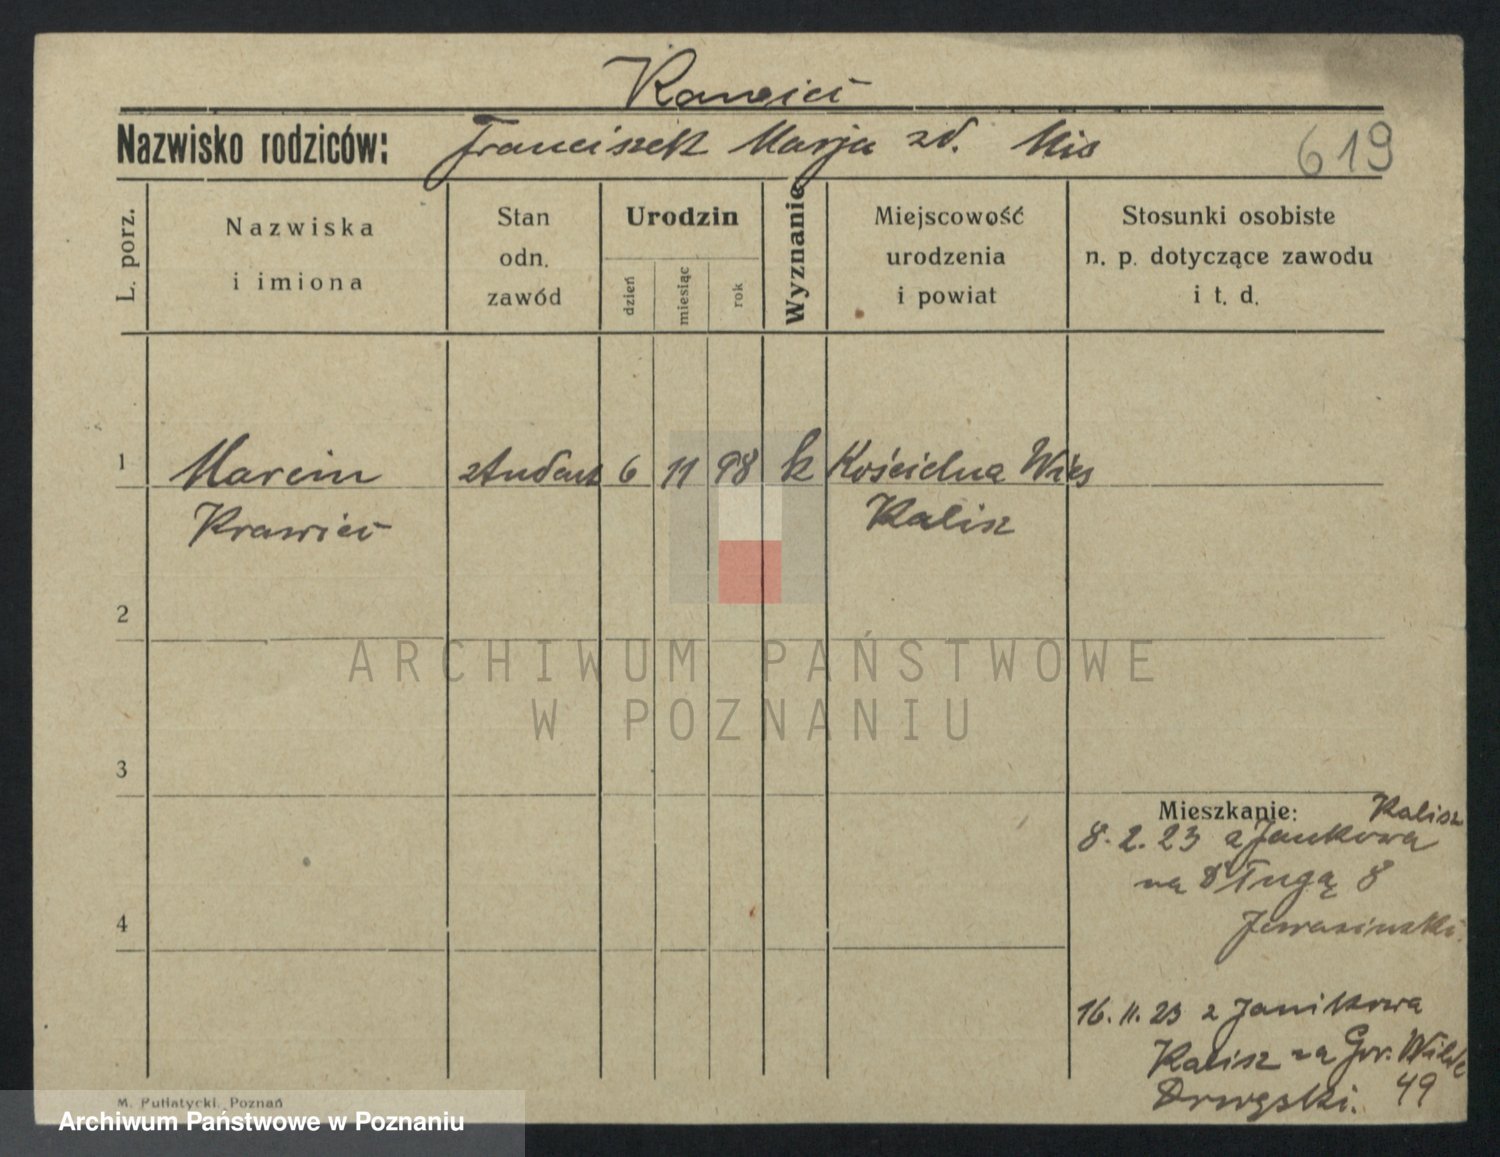 Krawiec
Nazwisko rodziców: Franciszek Marja zd. Mis
619
L. porz.
Nazwiska
i imiona
Stan
odn.
zawód
Urodzin
dzień
miesiąc
rok
Wyznanie
Miejscowość
urodzenia
i powiat
Stosunki osobiste
n. p. dotyczące zawodu
i t. d.
1 Marcin student 6 11 98 k Kościelna Wieś
Krawiec Kalisz
2
ARCHIWUM PAŃSTWOWE
W POZNANIU
3
Mieszkanie: Kalisz
8. 2. 23 z Jankowa
na Długą 8
4
16. 11. 23 z Janikowa
Kalisz na Gór. Wilde
49
M. Putiatycki, Poznań
Archiwum Państwowe w Poznaniu